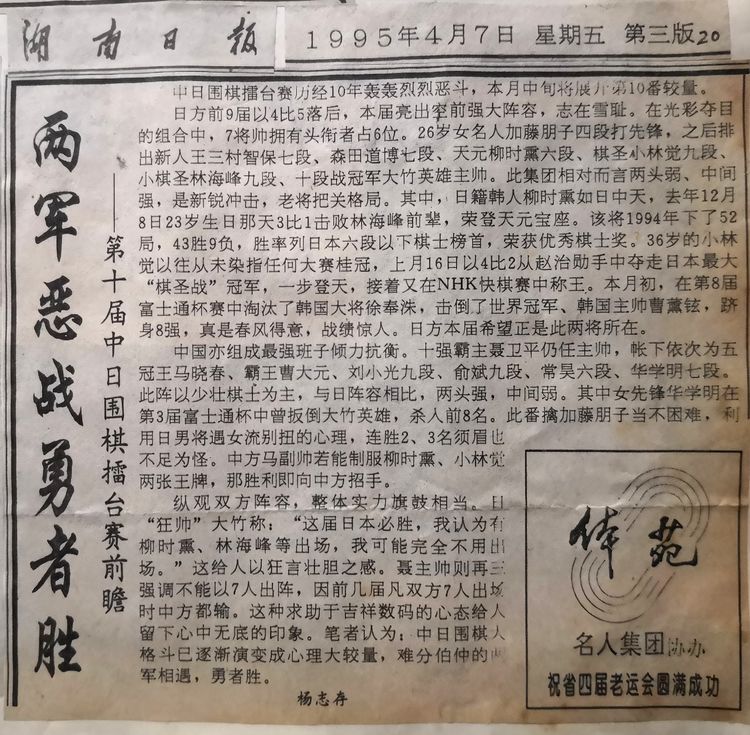 湖南日报
1995年4月7日 星期五 第三版20
两军恶战勇者胜
——第十届中日围棋擂台赛前瞻
中日围棋擂台赛历经10年轰轰烈烈恶斗，本月中旬将展开第10番较量。
日方前9届以4比5落后，本届亮出空前强大阵容，志在雪耻。在光彩夺目
的组合中，7将帅拥有头衔者占6位。26岁女名人加藤朋子四段打先锋，之后排
出新人王三村智保七段、森田道博七段、天元柳时熏六段、棋圣小林觉九段、
小棋圣林海峰九段、十段战冠军大竹英雄主帅。此集团相对而言两头弱、中间
强，是新锐冲击，老将把关格局。其中，日籍韩人柳时熏如日中天，去年12月
8日23岁生日那天3比1击败林海峰前辈，荣登天元宝座。该将1994年下了52
局，43胜9负，胜率列日本六段以下棋士榜首，荣获优秀棋士奖。36岁的小林
觉以往从未染指任何大赛桂冠，上月16日以4比2从赵治勋手中夺走日本最大
“棋圣战”冠军，一步登天，接着又在NHK快棋赛中称王。本月初，在第8届
富士通杯赛中淘汰了韩国大将徐奉洙，击倒了世界冠军、韩国主帅曹薰铉，跻
身8强，真是春风得意，战绩惊人。日方本届希望正是此两将所在。
中国亦组成最强班子倾力抗衡。十强霸主聂卫平仍任主帅，帐下依次为五
冠王马晓春、霸王曹大元、刘小光九段、俞斌九段、常昊六段、华学明七段。
此阵以少壮棋士为主，与日阵容相比，两头强，中间弱。其中女先锋华学明在
第3届富士通杯中曾扳倒大竹英雄，杀人前8名。此番擒加藤朋子当不困难，利
用日男将遇女流别扭的心理，连胜2、3名须眉也
不足为怪。中方马副帅若能制服柳时熏、小林觉
两张王牌，那胜利即向中方招手。
纵观双方阵容，整体实力旗鼓相当。日
“狂帅”大竹称：“这届日本必胜，我认为有
柳时熏、林海峰等出场，我可能完全不用出
场。”这给人以狂言壮胆之感。聂主帅则再三
强调不能以7人出阵，因前几届凡双方7人出场
时中方都输。这种求助于吉祥数码的心态给人
留下心中无底的印象。笔者认为：中日围棋大
格斗已逐渐演变成心理大较量，难分伯仲的两
军相遇，勇者胜。
杨志存
体苑
名人集团协办
祝省四届老运会圆满成功